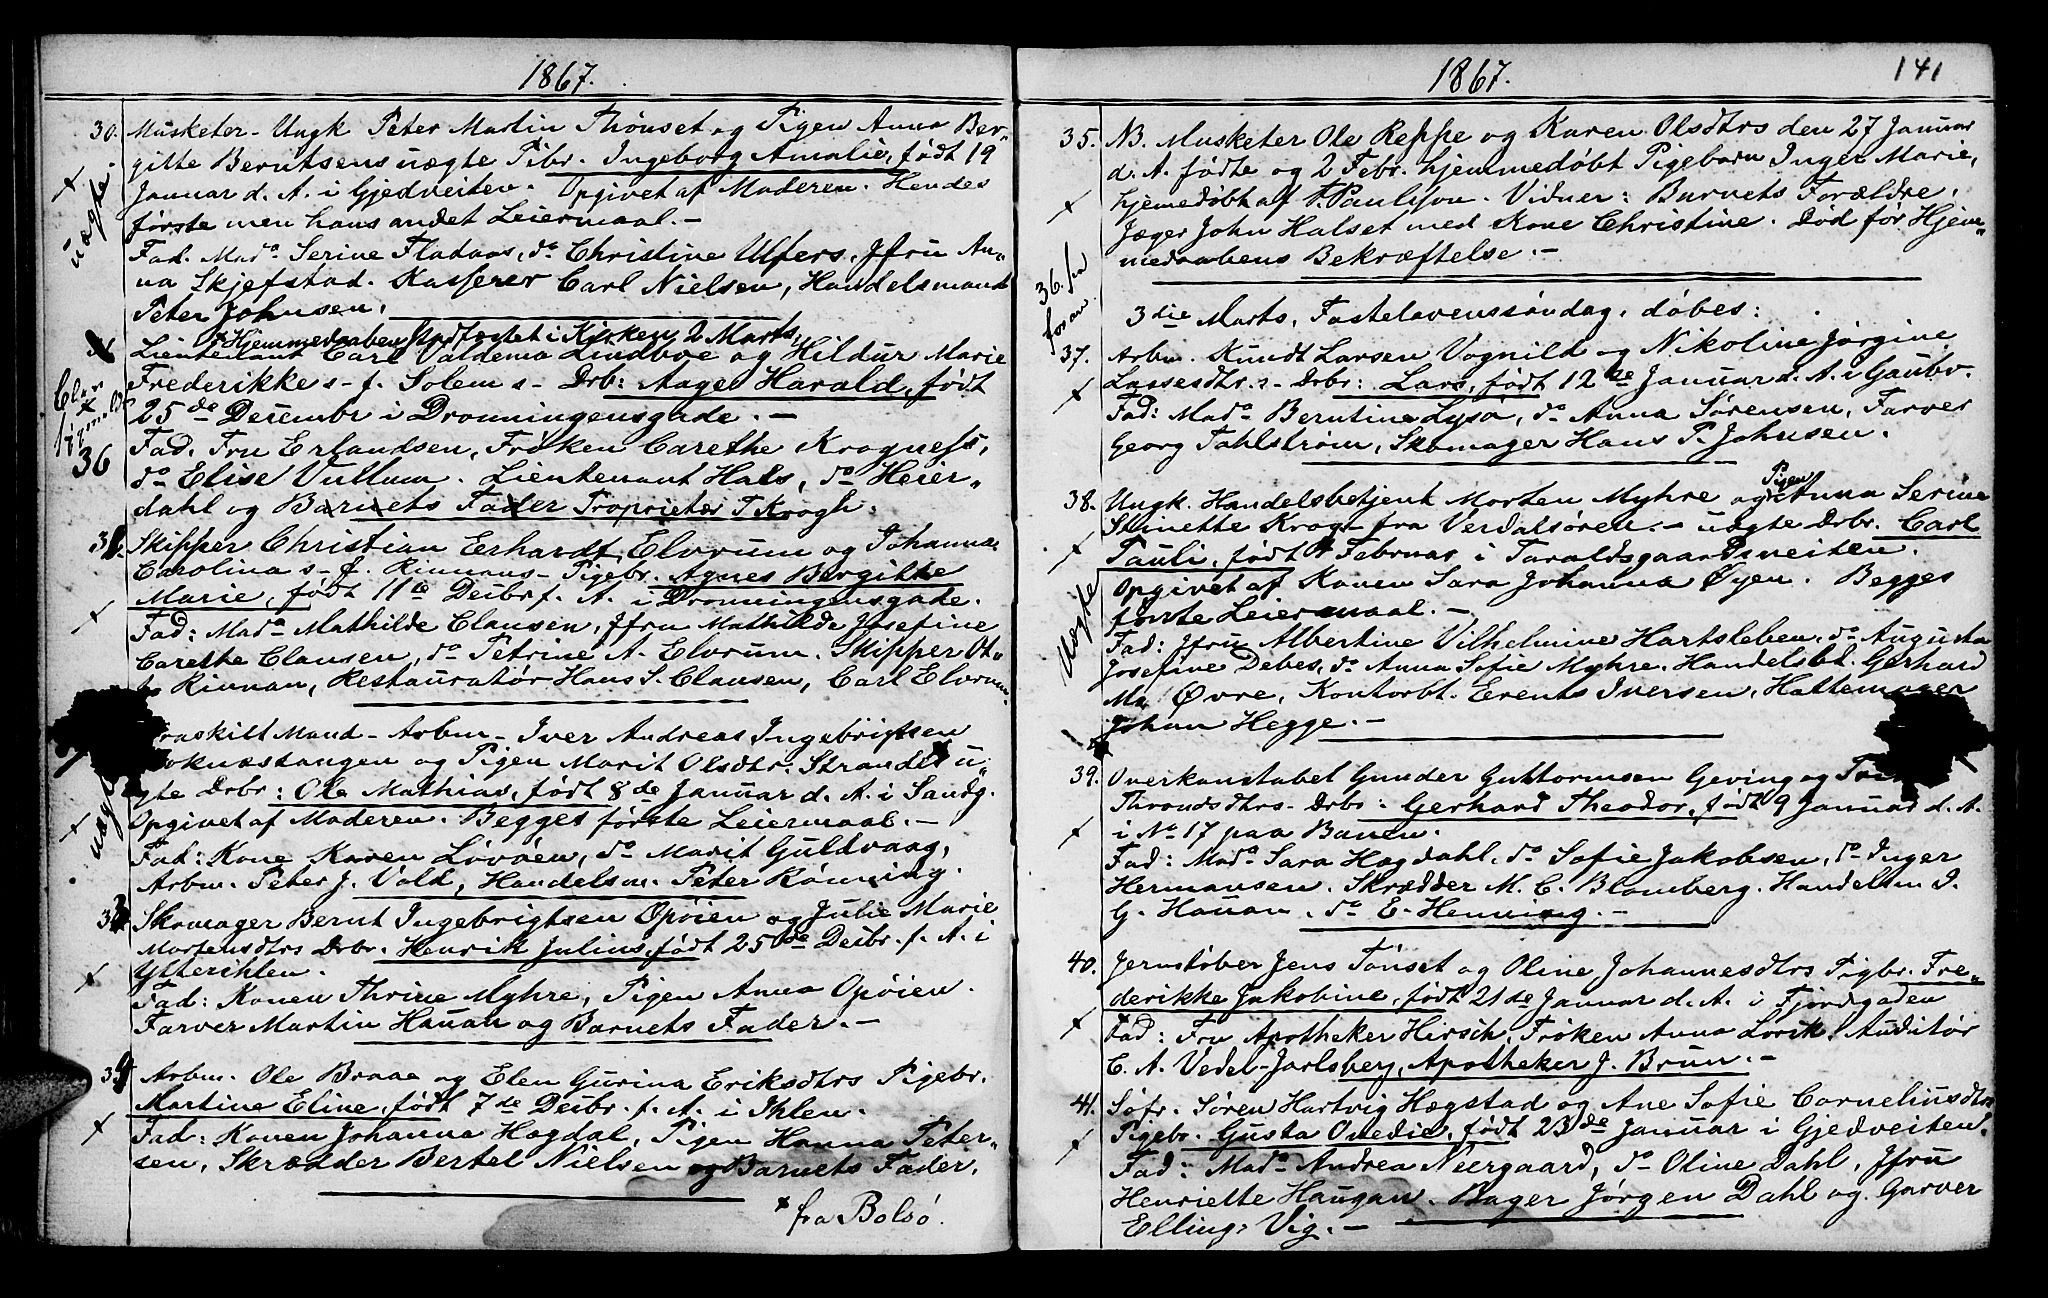 1867.
30. Musketer - Ungk Peter Martin Thönset og Pigen Anna Ber„
gitte Berntsens uægte Pibr. Ingeborg Amalie, født 19
Januar d. A. i Gjedveiten. Opgivet af Moderen. Hendes
første men hans andet Leiermaal. –
uægte
Fad. Mad. Serine Fladaas, do Christine Ulfers, Jfru An„
na Skjefstad. Kasserer Carl Nielsen, Handelsmand
Peter Johnsen.
Hjemmedaaben stadfæstet i Kirken 2 Marts.
Lieutenant Carl Valdema Lindboe og Hildur Marie
Frederikke s - f. Solem s - Drb: Aage Harald, født
25de Decembr i Dronningensgade. –
36
Fad. Fru Erlandsen, Frøken Carethe Kragness,
do Elise Vullum. Lieutenant Hals, do Heier„
dahl og Barnets Fader Proprietær T. Krogh.
Skipper Christian Erhardt Elvrum og Johanna
Carolina s - f. Rinnans - Pigebr. Agnes Bergitte
Marie, født 11te Decibr f. A. i Dronningensgade.
Fad: Mad. Mathilde Clausen, Jfru Mathilde Josefine
Carethe Clausen, do Petrine A. Elvrum. Skipper Ot„
to Rinnan, Restauratør Hans S. Clausen, Carl Elvrum.
Fraskilt Mand - Arbm - Iver Andreas Ingebrigtsen
Loknæstangen og Pigen Marit Olsdtr. Strands u„
ægte Drbr: Ole Mathias, født 8de Januar d. A. i Sandg.
Opgivet af Moderen. Begges første Leiermaal. –
uægte
Fad: Kone Karen Lövöen, do Marit Guldvaag,
Arbm. Peter J. Vold, Handelsm. Peter Rönning.
Skomager Bernt Ingebrigtsen Opöien og Julie Marie
Mortensdtrs Drbr. Henrik Julius, født 25de Decibr. f. A. i
Ytterihlen.
Fad: Konen Thrine Myhre, Pigen Anna Opöien.
Farver Martin Hauan og Barnets Fader. –
Arbm. Ole Braae og Elen Gurina Eriksdtrs Pigebr.
Martine Eline, født 7de Decibr. f. A. i Ihlen.
Fad: Konen Johanna Hagdal, Pigen Hanna Peter-
sen, Skrædder Bertel Nielsen og Barnets Fader.
× fra Bolsö.
1867.
141
35. NB. Musketer Ole Reppe og Karen Olsdtrs den 27 Januar
d. A. fødte og 2 Febr. hjemmedøbt Pigebarn Inger Marie,
hjemedøbt af P. Paulson. Vidner: Barnets Forældre,
Jæger John Halset med Kone Christine. Død før Hjem„
medaabens Bekræftelse. –
36. see
foran.
3die Marts, Fastelavenssöndag, døbes:
37. Arbm. Knudt Larsen Vognild og Nikoline Jörgine
Lassesdtr. s - Drbr: Lars, født 12te Januar d. A. i Gaubv.
Fad: Mad. Berntine Lysö, do Anna Sörensen, Farver
Georg Dahlström, Skomager Hans P. Johnsen.
38. Ungk. Handelsbetjent Morten Myhre og Pigen Anna Serine
Stinette Krog - fra Verdalsören. – uægte Drbr. Carl
Pauli, født Februar i Taraldsgaardsveiten.
Opgivet af Konen Sara Johanna Öyen. Begges
første Leiermaal. –
Uægte
Fad: Jfru Albertine Vilhelmine Hartsleben, do Augusta
Josefine Debes, do Anna Sofie Myhre. Handelsbt. Gerhard
M. Övre, Kontorbt. Erents Iversen, Hattemager
Johan Hegge. –
39. Overkonstabel Gunder Guttormsen Geving og
Throndsdtrs - Drbr: Gerhard Theodor, født 9 Januar d. A.
i No 17 paa Banen.
Fad: Mad. Sara Hagdahl, do Sofie Jakobsen, do Inger
Hermansen. Skrædder M. C. Blomberg. Handelsm I.
G. Hauan, do E. Henning. –
40. Jernstøber Jens Tönset og Oline Johannesdtrs Pigbr. Fre„
derikke Jakobine, født 21de Januar d. A. i Fjordgaden
Fad: Fru Apotheker Hirsch, Frøken Anna Lorck, Auditör
C. A. Vedel-Jarlsberg, Apotheker J. Brun. –
41. Söfr. Sören Hartvig Hægstad og Ane Sofie Corneliusdtrs
Pigebr. Gusta Ovedie, født 23de Januar i Gjedveiten.
Fad: Mad. Andrea Neergaard, do Oline Dahl, Jfru
Henriette Haugan. Bager Jörgen Dahl og Garver
Elling Vig. –